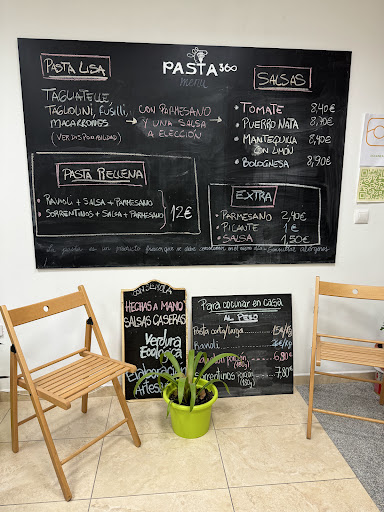 PASTA 360
menu
PASTA LISA
TAGLIATELLE,
TAGLIOLINI, FUSILLI,
MACARRONES
(VER DISPONIBILIDAD)
CON PARMESANO
Y UNA SALSA
A ELECCIÓN
SALSAS
• TOMATE 8,40€
• PUERRO NATA 8,40€
• MANTEQUILLA CON LIMÓN 8,40€
• BOLOGNESA 8,90€
PASTA RELLENA
• RAVIOLI + SALSA + PARMESANO
• SORRENTINOS + SALSA + PARMESANO
12€
EXTRA
• PARMESANO 2,40€
• PICANTE 1€
• SALSA 1,50€
La pasta es un producto fresco que se debe consumir en el mismo día. Consultar alérgenos
CON SÉMOLA
HECHAS A MANO
SALSAS CASERAS
Verdura
Ecológica
Elaboración
Artes
Para cocinar en casa
AL PESO
Pasta corta/larga
Ravioli
6,80€
(180g)
7,80€
(180g)